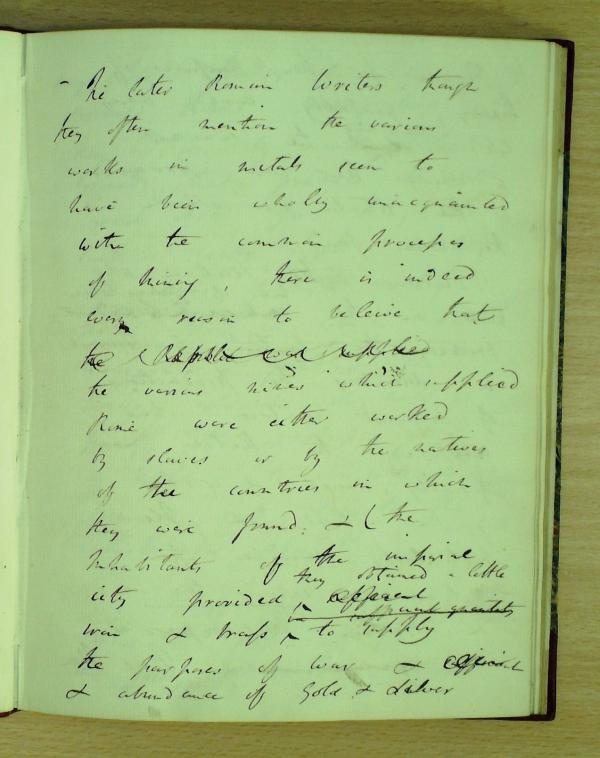 - The later Roman Writers though
they often mention the various
works in metals seem to
have been wholly unacquainted
with the common processes
of mining, there is indeed
every reason to beleive that
the Republic was supplied
the various mines which supplied
Rome were either worked
by slaves or by the natives
of the countries in which
they were found; & ( the
Inhabitants of the imperial
they obtained a little
city provided
sufficient quantity
iron & brass to supply
the purposes of war &
& abundance of Gold & Silver